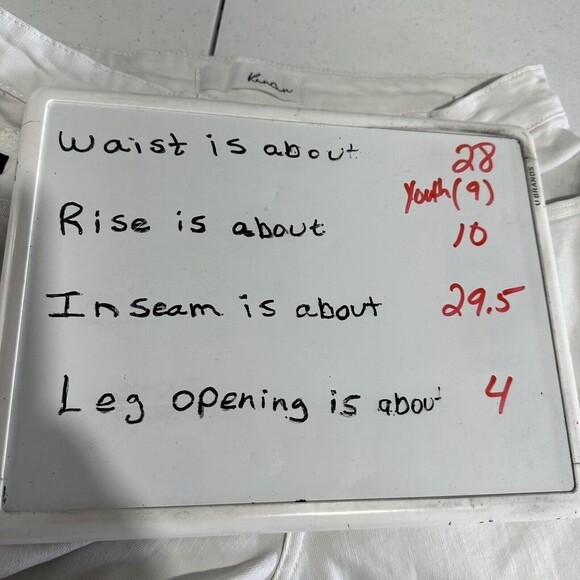 Waist is about 28
Youth (9)
Rise is about 10
Inseam is about 29.5
Leg opening is abou
4
U BRANDS